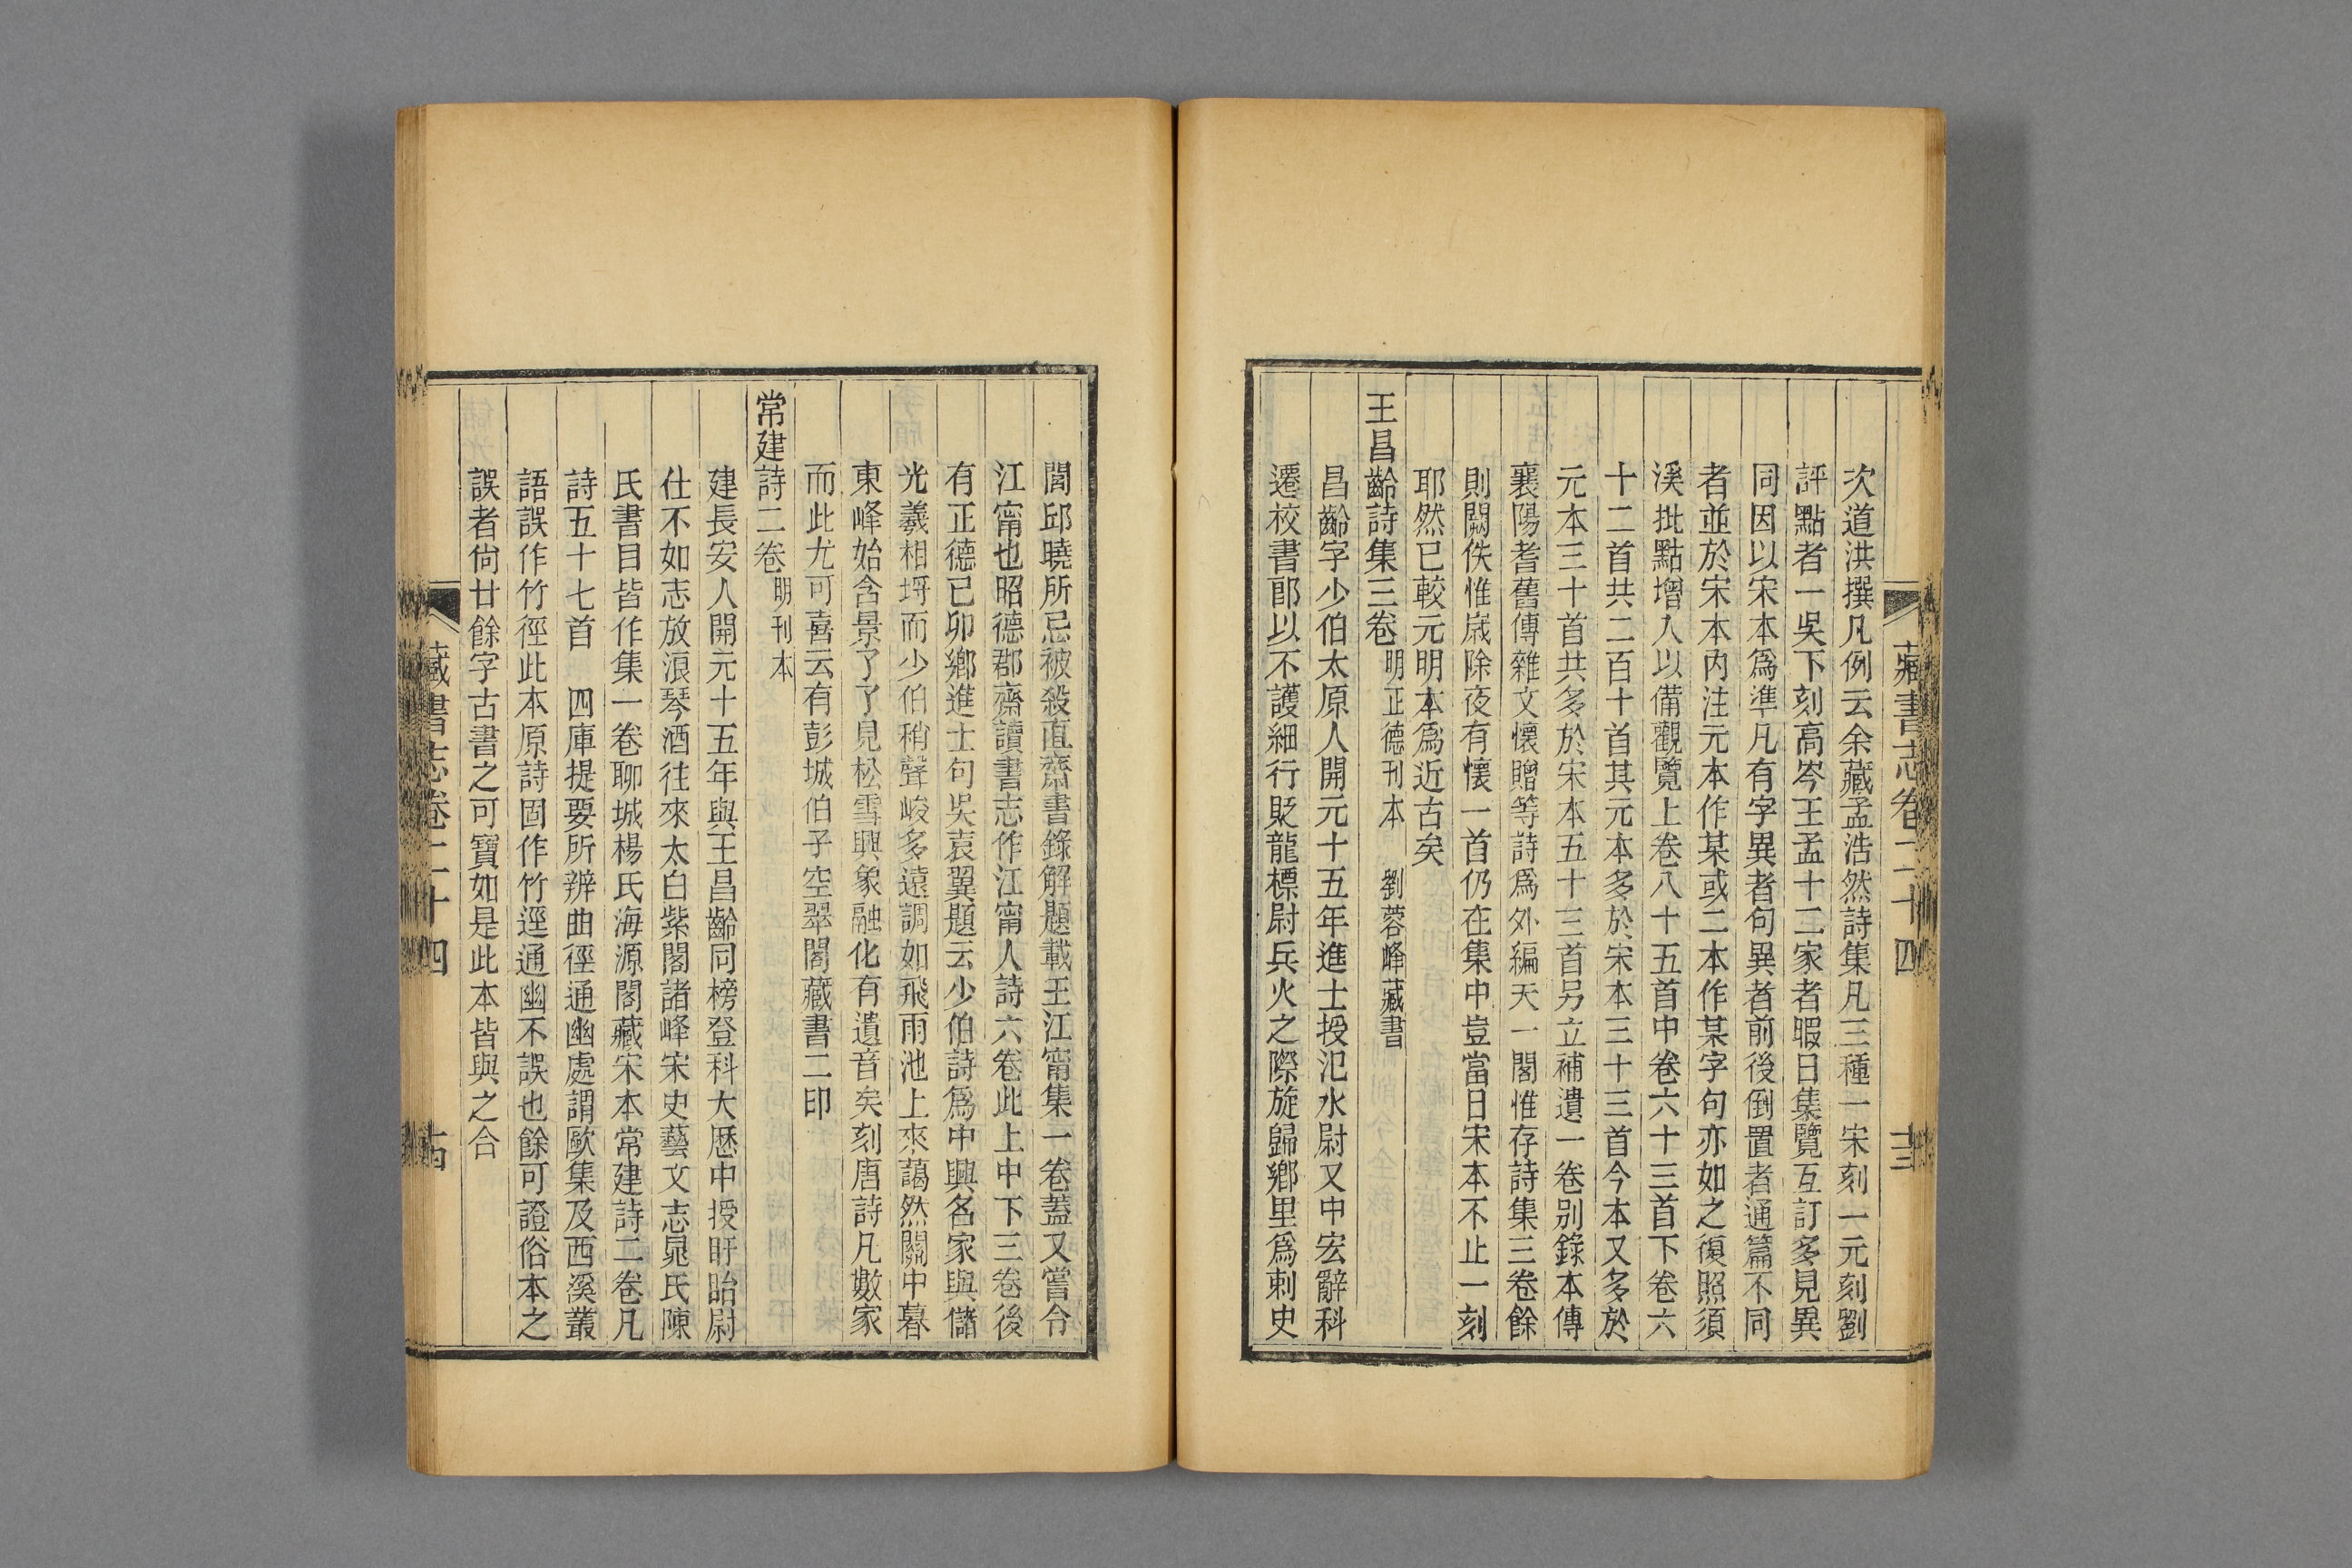 藏書志卷二十四
十三
次道洪撰凡例云余藏孟浩然詩集凡三種一宋刻一元刻劉
評點者一吳下刻高岑王孟十二家者暇日集覽互訂多見異
同因以宋本爲準凡有字異者句異者前後倒置者通篇不同
者並於宋本內注元本作某或二本作某字句亦如之復照須
溪批點增入以備觀覽上卷八十五首中卷六十三首下卷六
十二首共二百十首其元本多於宋本三十三首今本又多於
元本三十首共多於宋本五十三首另立補遺一卷别錄本傳
襄陽耆舊傳雜文懷贈等詩爲外編天一閣惟存詩集三卷餘
則闕佚惟歲除夜有懷一首仍在集中豈當日宋本不止一刻
耶然已較元明本爲近古矣
王昌齡詩集三卷 明正德刊本 劉蓉峰藏書
昌齡字少伯太原人開元十五年進士授汜水尉又中宏辭科
遷校書郎以不護細行貶龍標尉兵火之際旋歸鄉里爲刺史
閭邱曉所忌被殺直齋書錄解題載王江甯集一卷蓋又嘗令
江甯也昭德郡齋讀書志作江甯人詩六卷此上中下三卷後
有正德己卯鄉進士句吳袁翼題云少伯詩爲中興名家與儲
光羲相埒而少伯稍聲峻多遠調如飛雨池上來藹然關中暮
東峰始含景了了見松雪興象融化有遺音矣刻唐詩凡數家
而此尤可喜云有彭城伯子空翠閣藏書二印
常建詩二卷 明刊本
建長安人開元十五年與王昌齡同榜登科大厯中授盱眙尉
仕不如志放浪琴酒往來太白紫閣諸峰宋史藝文志晁氏陳
氏書目皆作集一卷聊城楊氏海源閣藏宋本常建詩二卷凡
詩五十七首 四庫提要所辨曲徑通幽處謂歐集及西溪叢
語誤作竹徑此本原詩固作竹逕通幽不誤也餘可證俗本之
誤者尚廿餘字古書之可寶如是此本皆與之合
藏書志卷二十四
十四